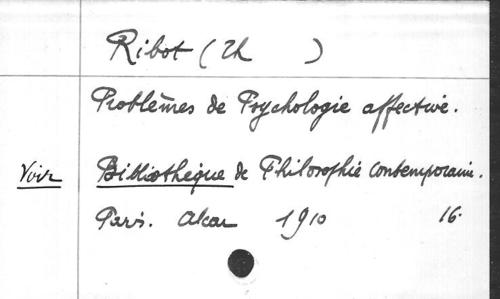 Ribot (Th )
Problèmes de Psychologie affective.
Voir Bibliothèque de Philosophie Contemporaine.
Paris. Alcan 1910 16.